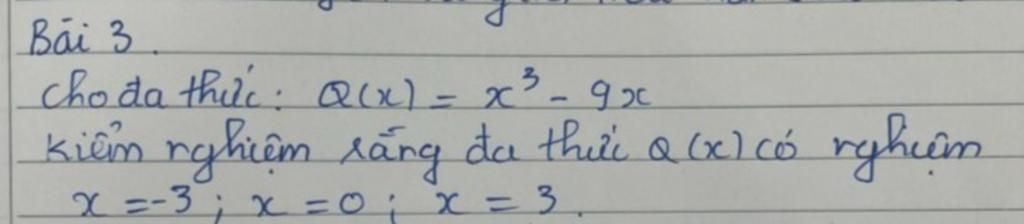 Bài 3.
Cho đa thức: Q(x) = x³ - 9x
Kiểm nghiệm rằng đa thức Q(x) có nghiệm
x = -3 ; x = 0 ; x = 3.